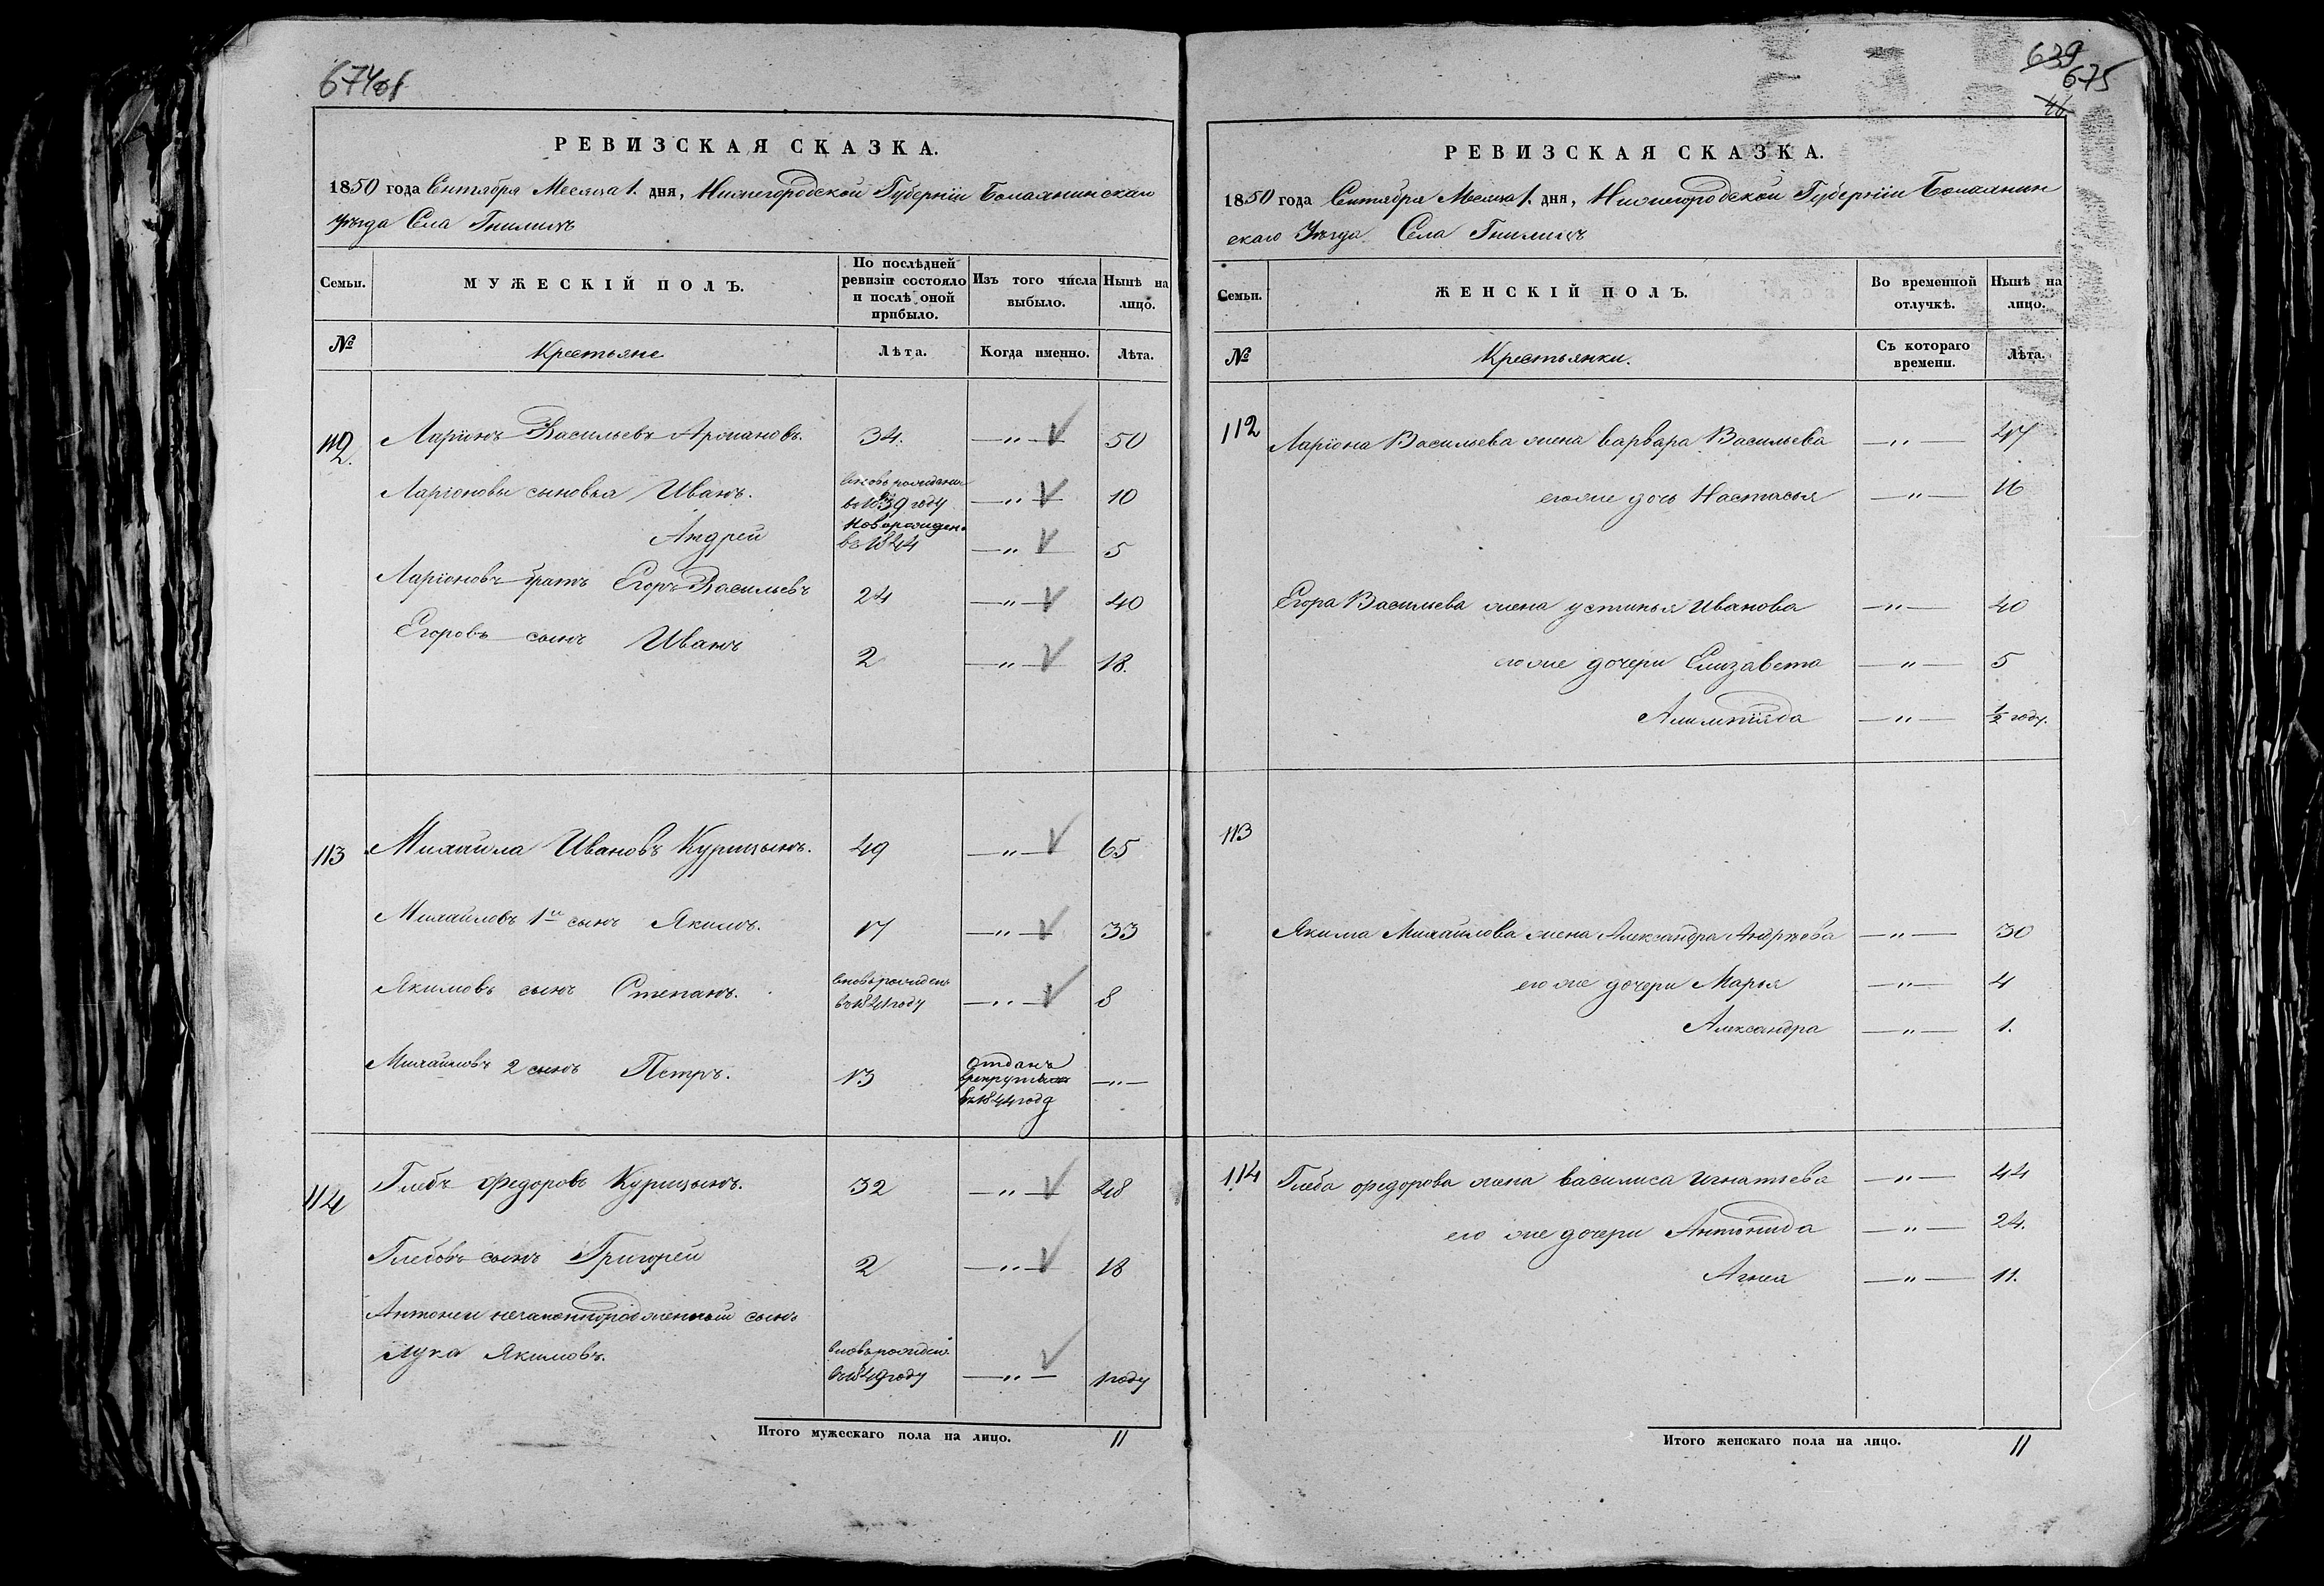 674об
РЕВИЗСКАЯ СКАЗКА.
1850 года Сентября Месяца 1. дня, Нижегородской Губерніи Балахнинскаго
Уѣзда Села Гнилицъ
Семьи.
МУЖЕСКІЙ ПОЛЪ.
По послѣдней ревизіи состояло и послѣ оной прибыло.
Изъ того числа выбыло.
Ныне на лицо.
№
Крестьяне
Лѣта.
Когда именно.
Лѣта.
112. Ларіонъ Васильевъ 34. —„— 50
Ларіоновы сыновья Иванъ. вновь рожденъ въ 1839 году —„— 10
Андрей новорожден. въ 1844 —„— 5
Ларіоновъ братъ Егоръ Васильевъ 24 —„— 40
Егоровъ сынъ Иванъ 2 —„— 18.
113 Михаила Ивановъ Курицынъ. 49 —„— 65
Михайловъ 1й сынъ Якимъ. 17 —„— 33
Якимовъ сынъ Степанъ. вновь рожденъ въ 1841 году —„— 8
Михайловъ 2 сынъ Петръ. 13 отданъ в рекруты в 1844 году —„—
114 Глебъ Федоровъ Курицынъ. 32 —„— 48
Глебовъ сынъ Григорей 2 —„— 18
Антониды незаконнорожденный сынъ
Лука Якимовъ. вновь рожден. въ 1849 году —„— 1 году
Итого мужескаго пола на лицо. 11
639
675
46
РЕВИЗСКАЯ СКАЗКА.
1850 года Сентября Месяца 1. дня, Нижегородской Губерніи Балахнин
скаго Уѣзда Села Гнилицъ
Семьи.
ЖЕНСКІЙ ПОЛЪ.
Во временной отлучкѣ.
Ныне на лицо.
№
Крестьянки.
Съ котораго времени.
Лѣта.
112 Ларіона Васильева жена варвара Васильева —„— 47
его же дочь Настасья —„— 16
Егора Васильева жена устинья Иванова —„— 40
его же дочери Елизавета —„— 5
Алимпіяда —„— ½ году.
113
Якима Михайлова жена Александра Андрѣева —„— 30
его же дочери Марья —„— 4
Александра —„— 1.
114 Глеба федорова жена василиса игнатьева —„— 44
его же дочери Антонида —„— 24.
Агнея —„— 11.
Итого женскаго пола на лицо. 11